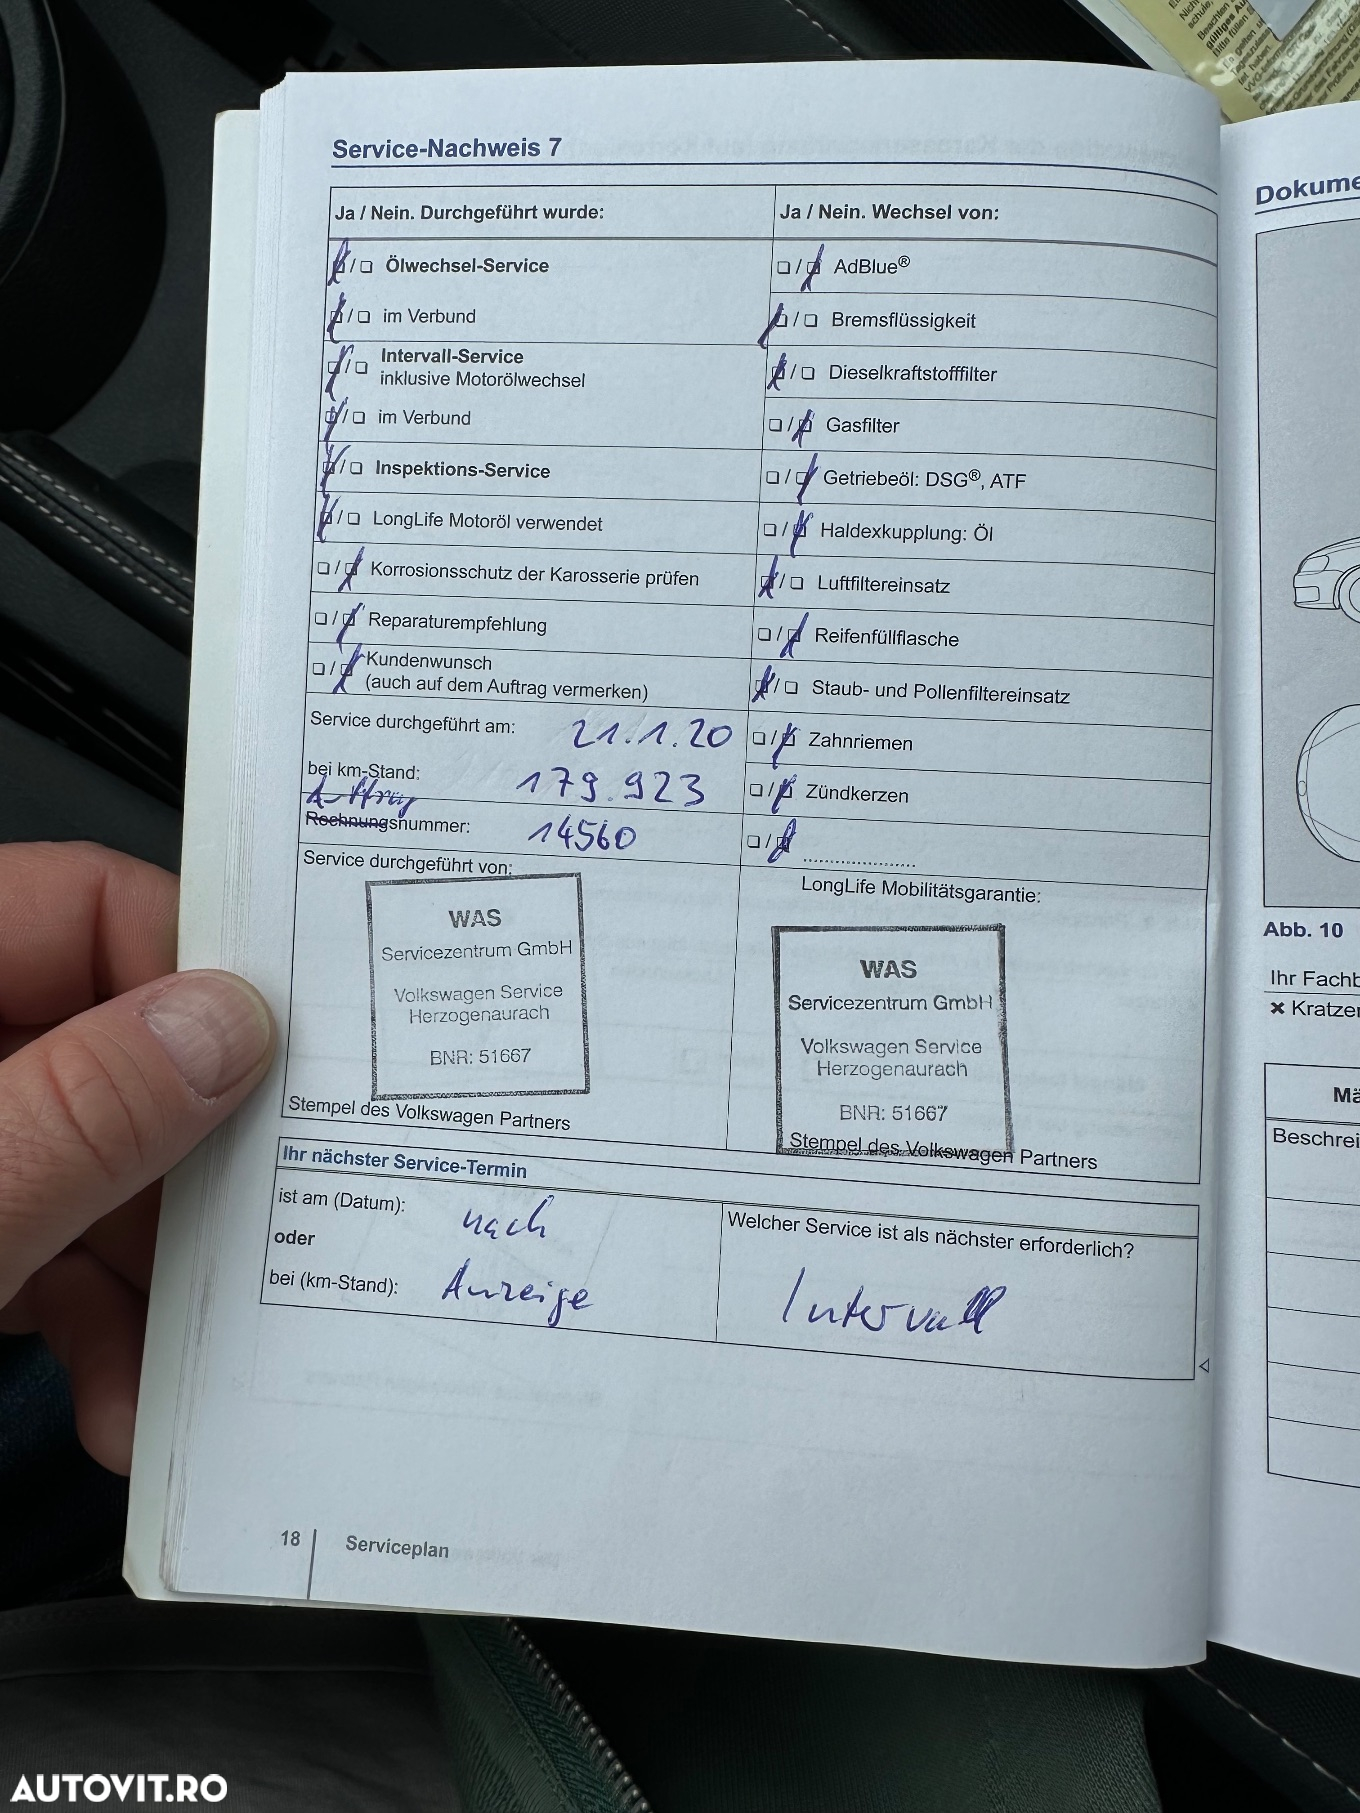 Service-Nachweis 7
Ja / Nein. Durchgeführt wurde:
☒ / ☐ Ölwechsel-Service
☒ / ☐ im Verbund
☒ / ☐ Intervall-Service
inklusive Motorölwechsel
☒ / ☐ im Verbund
☒ / ☐ Inspektions-Service
☒ / ☐ LongLife Motoröl verwendet
☐ / ☒ Korrosionsschutz der Karosserie prüfen
☐ / ☒ Reparaturempfehlung
☐ / ☒ Kundenwunsch
(auch auf dem Auftrag vermerken)
Service durchgeführt am: 21.1.20
bei km-Stand: 179.923
Auftrag
Rechnungsnummer: 14560
Service durchgeführt von:
WAS
Servicezentrum GmbH
Volkswagen Service
Herzogenaurach
BNR: 51667
Stempel des Volkswagen Partners
Ja / Nein. Wechsel von:
☐ / ☒ AdBlue®
☒ / ☐ Bremsflüssigkeit
☒ / ☐ Dieselkraftstofffilter
☐ / ☒ Gasfilter
☐ / ☒ Getriebeöl: DSG®, ATF
☐ / ☒ Haldexkupplung: Öl
☒ / ☐ Luftfiltereinsatz
☐ / ☒ Reifenfüllflasche
☒ / ☐ Staub- und Pollenfiltereinsatz
☐ / ☒ Zahnriemen
☐ / ☒ Zündkerzen
☐ / ☒ ....................
LongLife Mobilitätsgarantie:
WAS
Servicezentrum GmbH
Volkswagen Service
Herzogenaurach
BNR: 51667
Stempel des Volkswagen Partners
Ihr nächster Service-Termin
ist am (Datum): nach
oder
bei (km-Stand): Anzeige
Welcher Service ist als nächster erforderlich?
Intervall
18 Serviceplan
Dokume
Abb. 10
Ihr Fachb
✖ Kratzer
Mä
Beschrei
AUTOVIT.RO